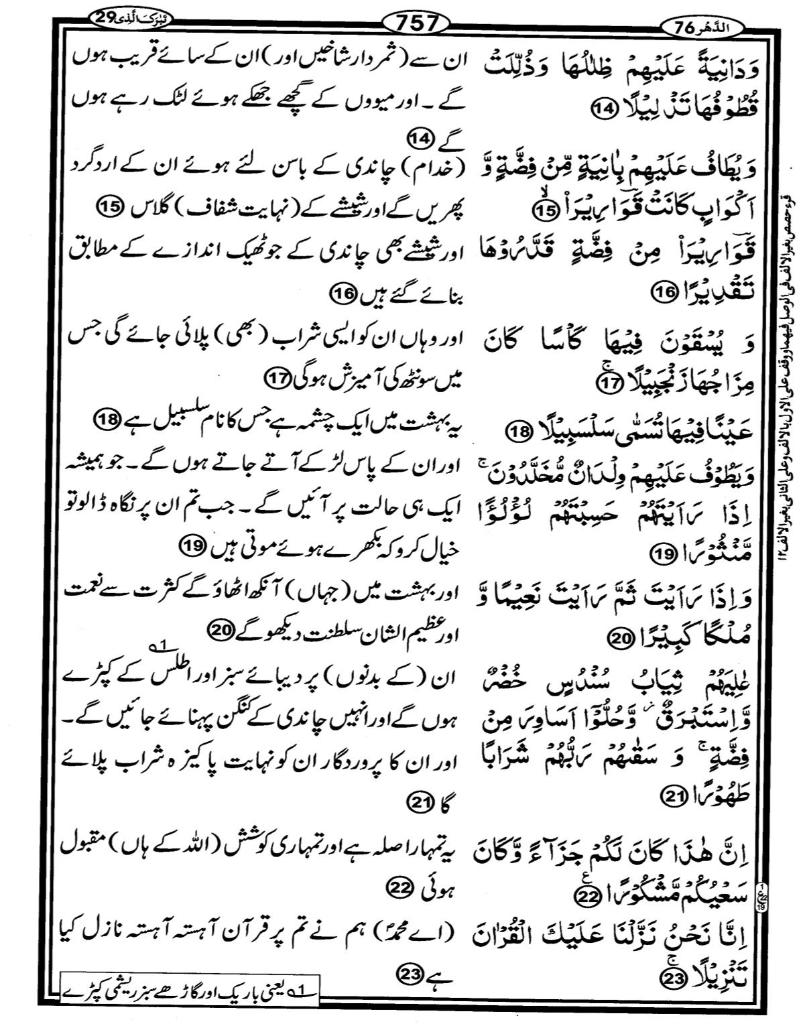 الدَّهْر 76
757
تَبٰرَكَ الَّذِىْ 29
وَدَانِيَةً عَلَيْهِمْ ظِلٰلُهَا وَذُلِّلَتْ
قُطُوْفُهَا تَذْلِيْلًا ﴿14﴾
وَيُطَافُ عَلَيْهِمْ بِاٰنِيَةٍ مِّنْ فِضَّةٍ وَّ
اَكْوَابٍ كَانَتْ قَوَارِيْرَا۟ ﴿15﴾
قَوَارِيْرَا۟ مِنْ فِضَّةٍ قَدَّرُوْهَا
تَقْدِيْرًا ﴿16﴾
وَ يُسْقَوْنَ فِيْهَا كَاْسًا كَانَ
مِزَاجُهَا زَنْجَبِيْلًا ۚ﴿17﴾
عَيْنًا فِيْهَا تُسَمّٰى سَلْسَبِيْلًا ﴿18﴾
وَيَطُوْفُ عَلَيْهِمْ وِلْدَانٌ مُّخَلَّدُوْنَ ۚ
اِذَا رَاَيْتَهُمْ حَسِبْتَهُمْ لُؤْلُؤًا
مَّنْثُوْرًا ﴿19﴾
وَاِذَا رَاَيْتَ ثَمَّ رَاَيْتَ نَعِيْمًا وَّ
مُلْكًا كَبِيْرًا ﴿20﴾
عٰلِيَهُمْ ثِيَابُ سُنْدُسٍ خُضْرٌ
وَّاِسْتَبْرَقٌ ز وَّحُلُّوْٓا اَسَاوِرَ مِنْ
فِضَّةٍ ۚ وَ سَقٰىهُمْ رَبُّهُمْ شَرَابًا
طَهُوْرًا ﴿21﴾
اِنَّ هٰذَا كَانَ لَكُمْ جَزَآءً وَّكَانَ
سَعْيُكُمْ مَّشْكُوْرًا ﴿22﴾
اِنَّا نَحْنُ نَزَّلْنَا عَلَيْكَ الْقُرْاٰنَ
تَنْزِيْلًا ۚ﴿23﴾
ان سے (ثمر دار شاخیں اور) ان کے سائے قریب ہوں
گے ۔ اور میووں کے گچھے جھکے ہوئے لٹک رہے ہوں
گے ﴿14﴾
(خدام) چاندی کے باسن لئے ہوئے ان کے اردگرد
پھریں گے اور شیشے کے (نہایت شفاف) گلاس ﴿15﴾
اور شیشے بھی چاندی کے جو ٹھیک اندازے کے مطابق
بنائے گئے ہیں ﴿16﴾
اور وہاں ان کو ایسی شراب (بھی) پلائی جائے گی جس
میں سونٹھ کی آمیزش ہوگی ﴿17﴾
یہ بہشت میں ایک چشمہ ہے جس کا نام سلسبیل ہے ﴿18﴾
اور ان کے پاس لڑکے آتے جاتے ہوں گے ۔ جو ہمیشہ
ایک ہی حالت پر آئیں گے ۔ جب تم ان پر نگاہ ڈالو تو
خیال کرو کہ بکھرے ہوئے موتی ہیں ﴿19﴾
اور بہشت میں (جہاں) آنکھ اٹھاؤ گے کثرت سے نعمت
اور عظیم الشان سلطنت دیکھو گے ﴿20﴾
ان (کے بدنوں) پر دیبائے سبز اور اطلس کے کپڑے 1؎
ہوں گے اور انہیں چاندی کے کنگن پہنائے جائیں گے ۔
اور ان کا پروردگار ان کو نہایت پاکیزہ شراب پلائے
گا ﴿21﴾
یہ تمہارا صلہ ہے اور تمہاری کوشش (اللہ کے ہاں) مقبول
ہوئی ﴿22﴾
(اے محمدؐ) ہم نے تم پر قرآن آہستہ آہستہ نازل کیا
ہے ﴿23﴾
1؎ یعنی باریک اور گاڑھے سبز ریشمی کپڑے